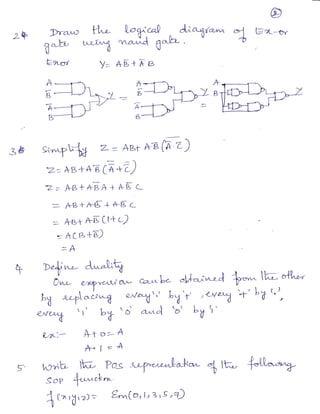 ②
2. Draw the logical diagram of Ex-or
gate using nand gate.
Exor Y = AB̅ + A̅ B
A A A
B̅ B̅ Y B Y
A̅ Y = A̅ =
B B
3. Simplify Z = AB + AB̅ (A̅ C̅)
Z = AB + AB̅ (A̿ + C̿)
Z = AB + AB̅A + AB̅ C
= AB + AB̅ + AB̅ C
= AB + AB̅ (1+C)
= A(B+B̅)
= A
4 Define duality
One expression can be obtained from the other
by replacing every '.' by '+', every '+' by '.',
every '1' by '0' and '0' by '1'
ex:- A + 0 = A
A . 1 = A
5. Write the POS representation of the following
SOP function
f(x,y,z) = Σm(0,1,3,5,7)